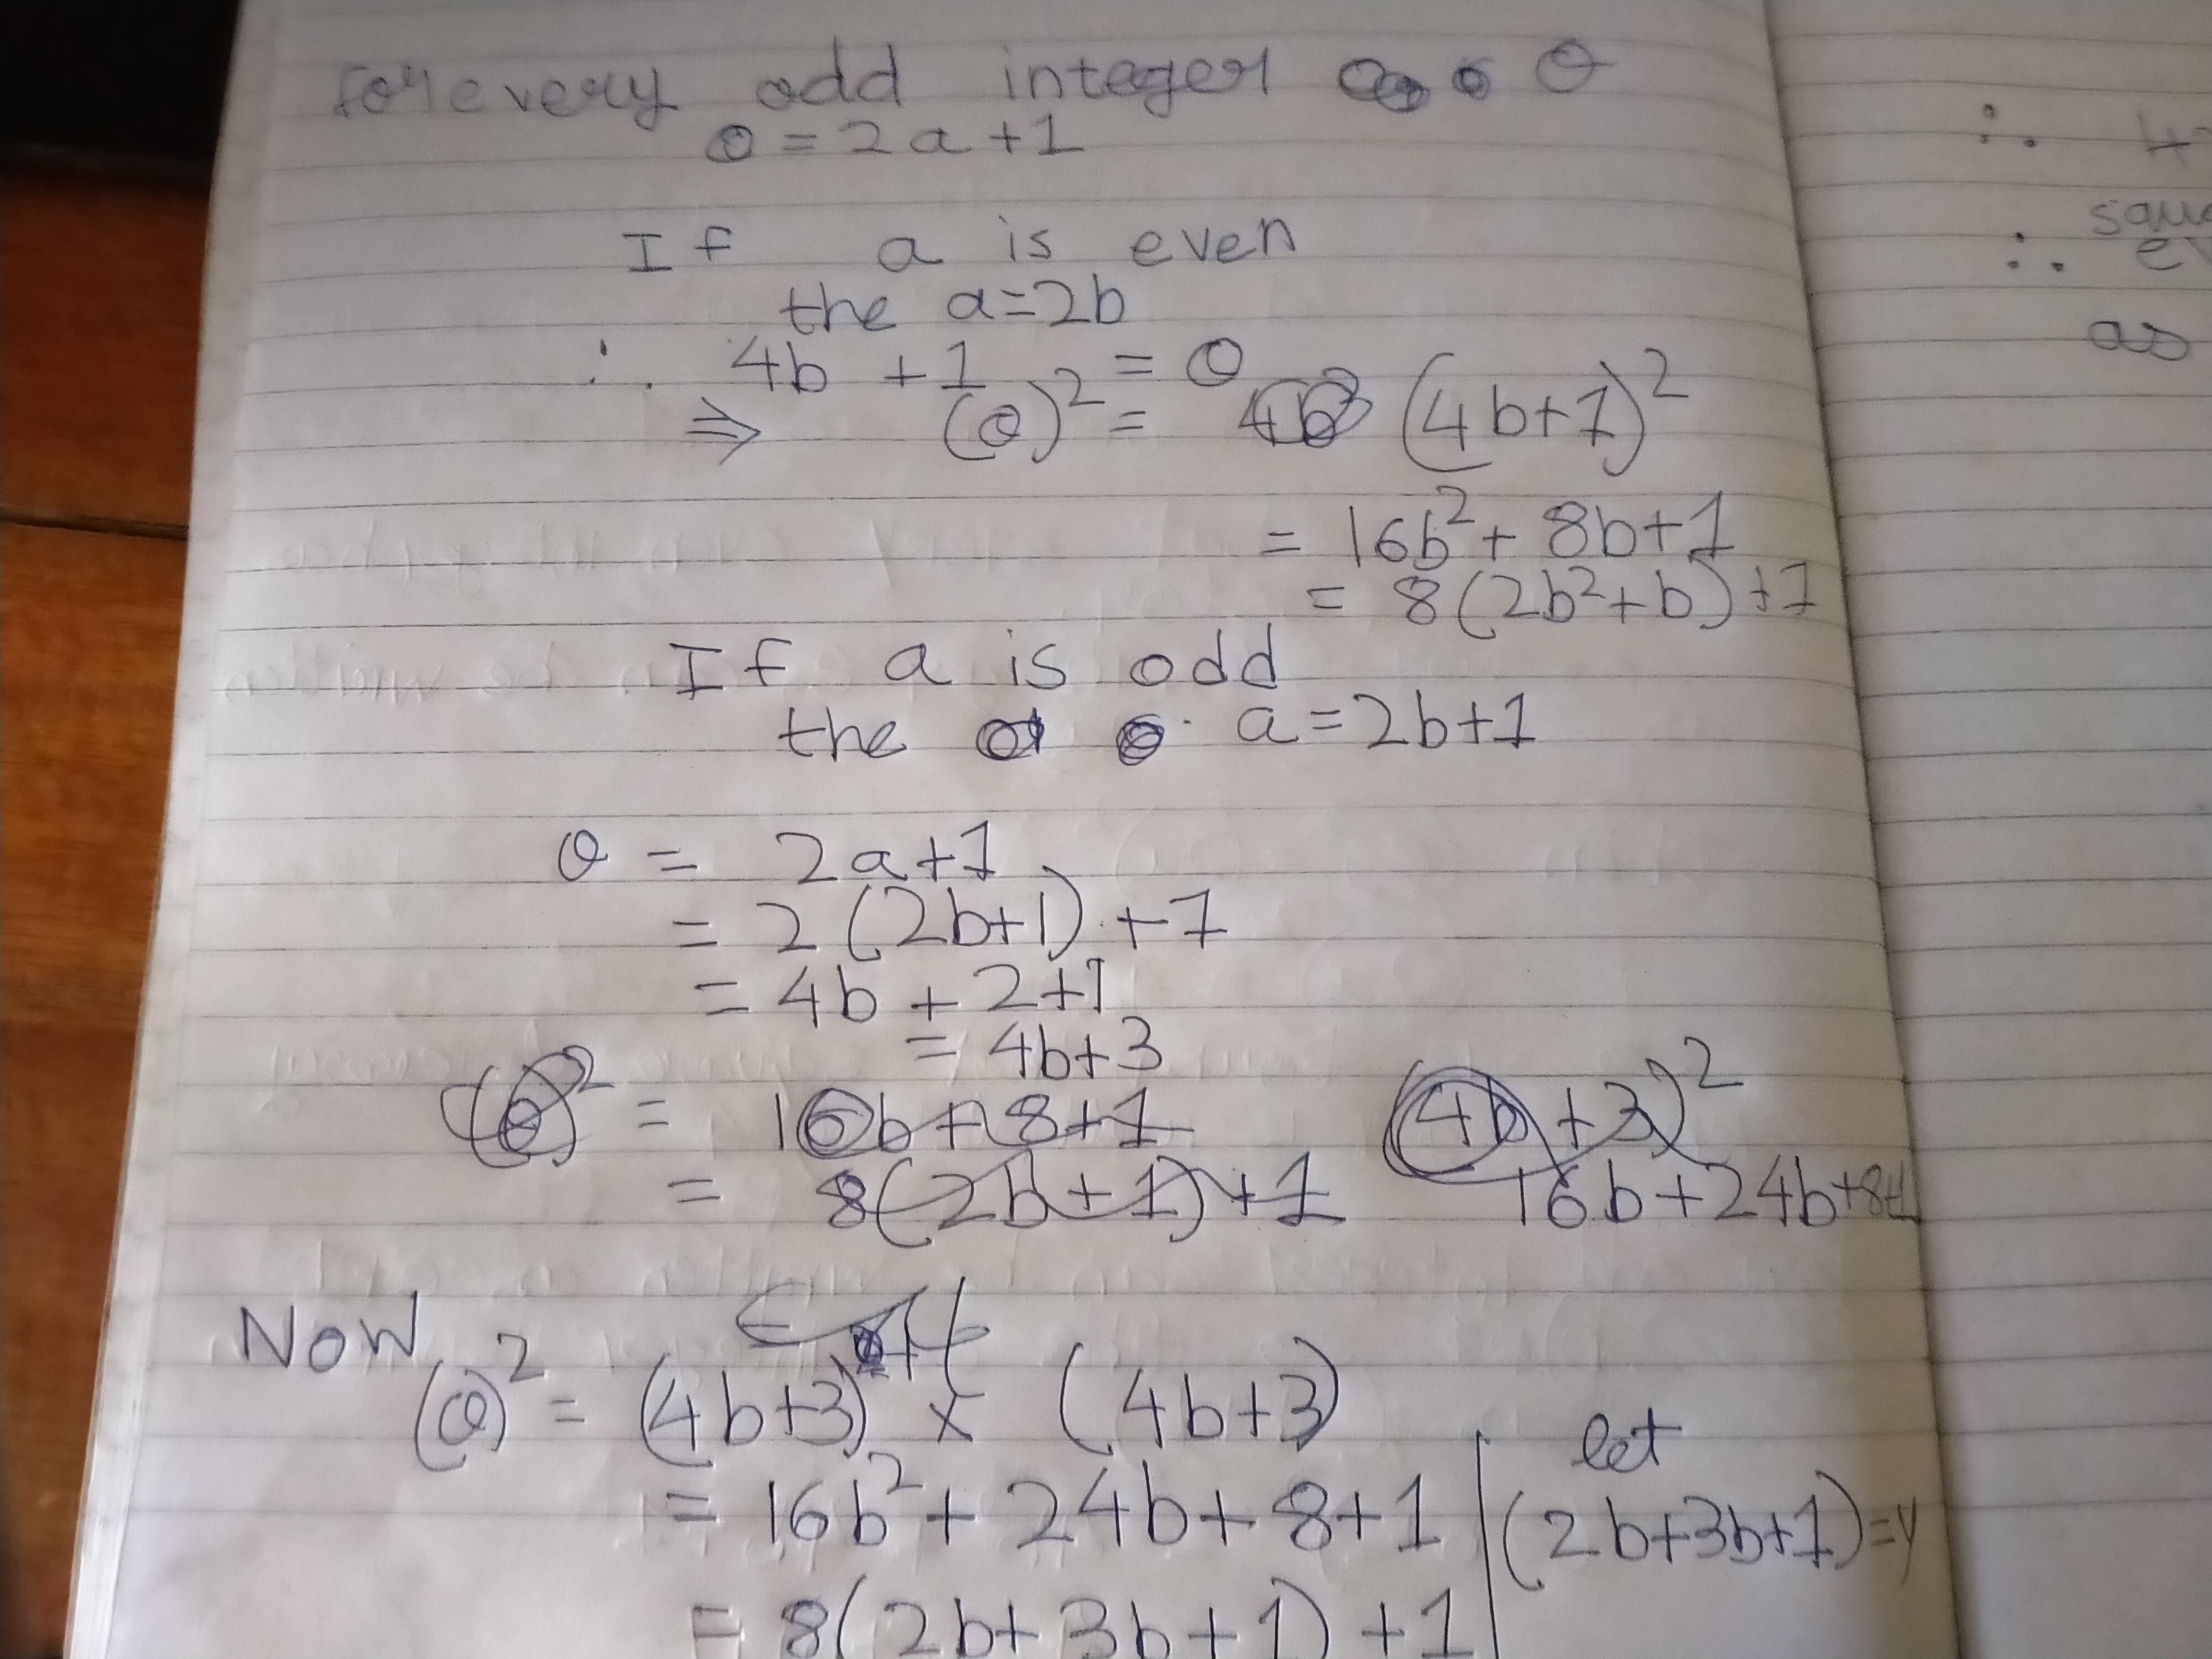 for every odd integer O
O = 2a+1
If a is even
the a=2b
∴ 4b +1 = O
⇒ (O)² = (4b+1)²
= 16b²+ 8b+1
= 8(2b²+b)+1
If a is odd
the a=2b+1
O = 2a+1
= 2(2b+1)+1
= 4b + 2+1
= 4b+3
(O)² = 16b+8+1 (4b+3)²
= 8(2b+1)+1 16b+24b+8+1
NOW
(O)² = (4b+3) × (4b+3)
= 16b²+ 24b+8+1
= 8(2b+3b+1)+1
let
(2b+3b+1)=y
∴
∴
as